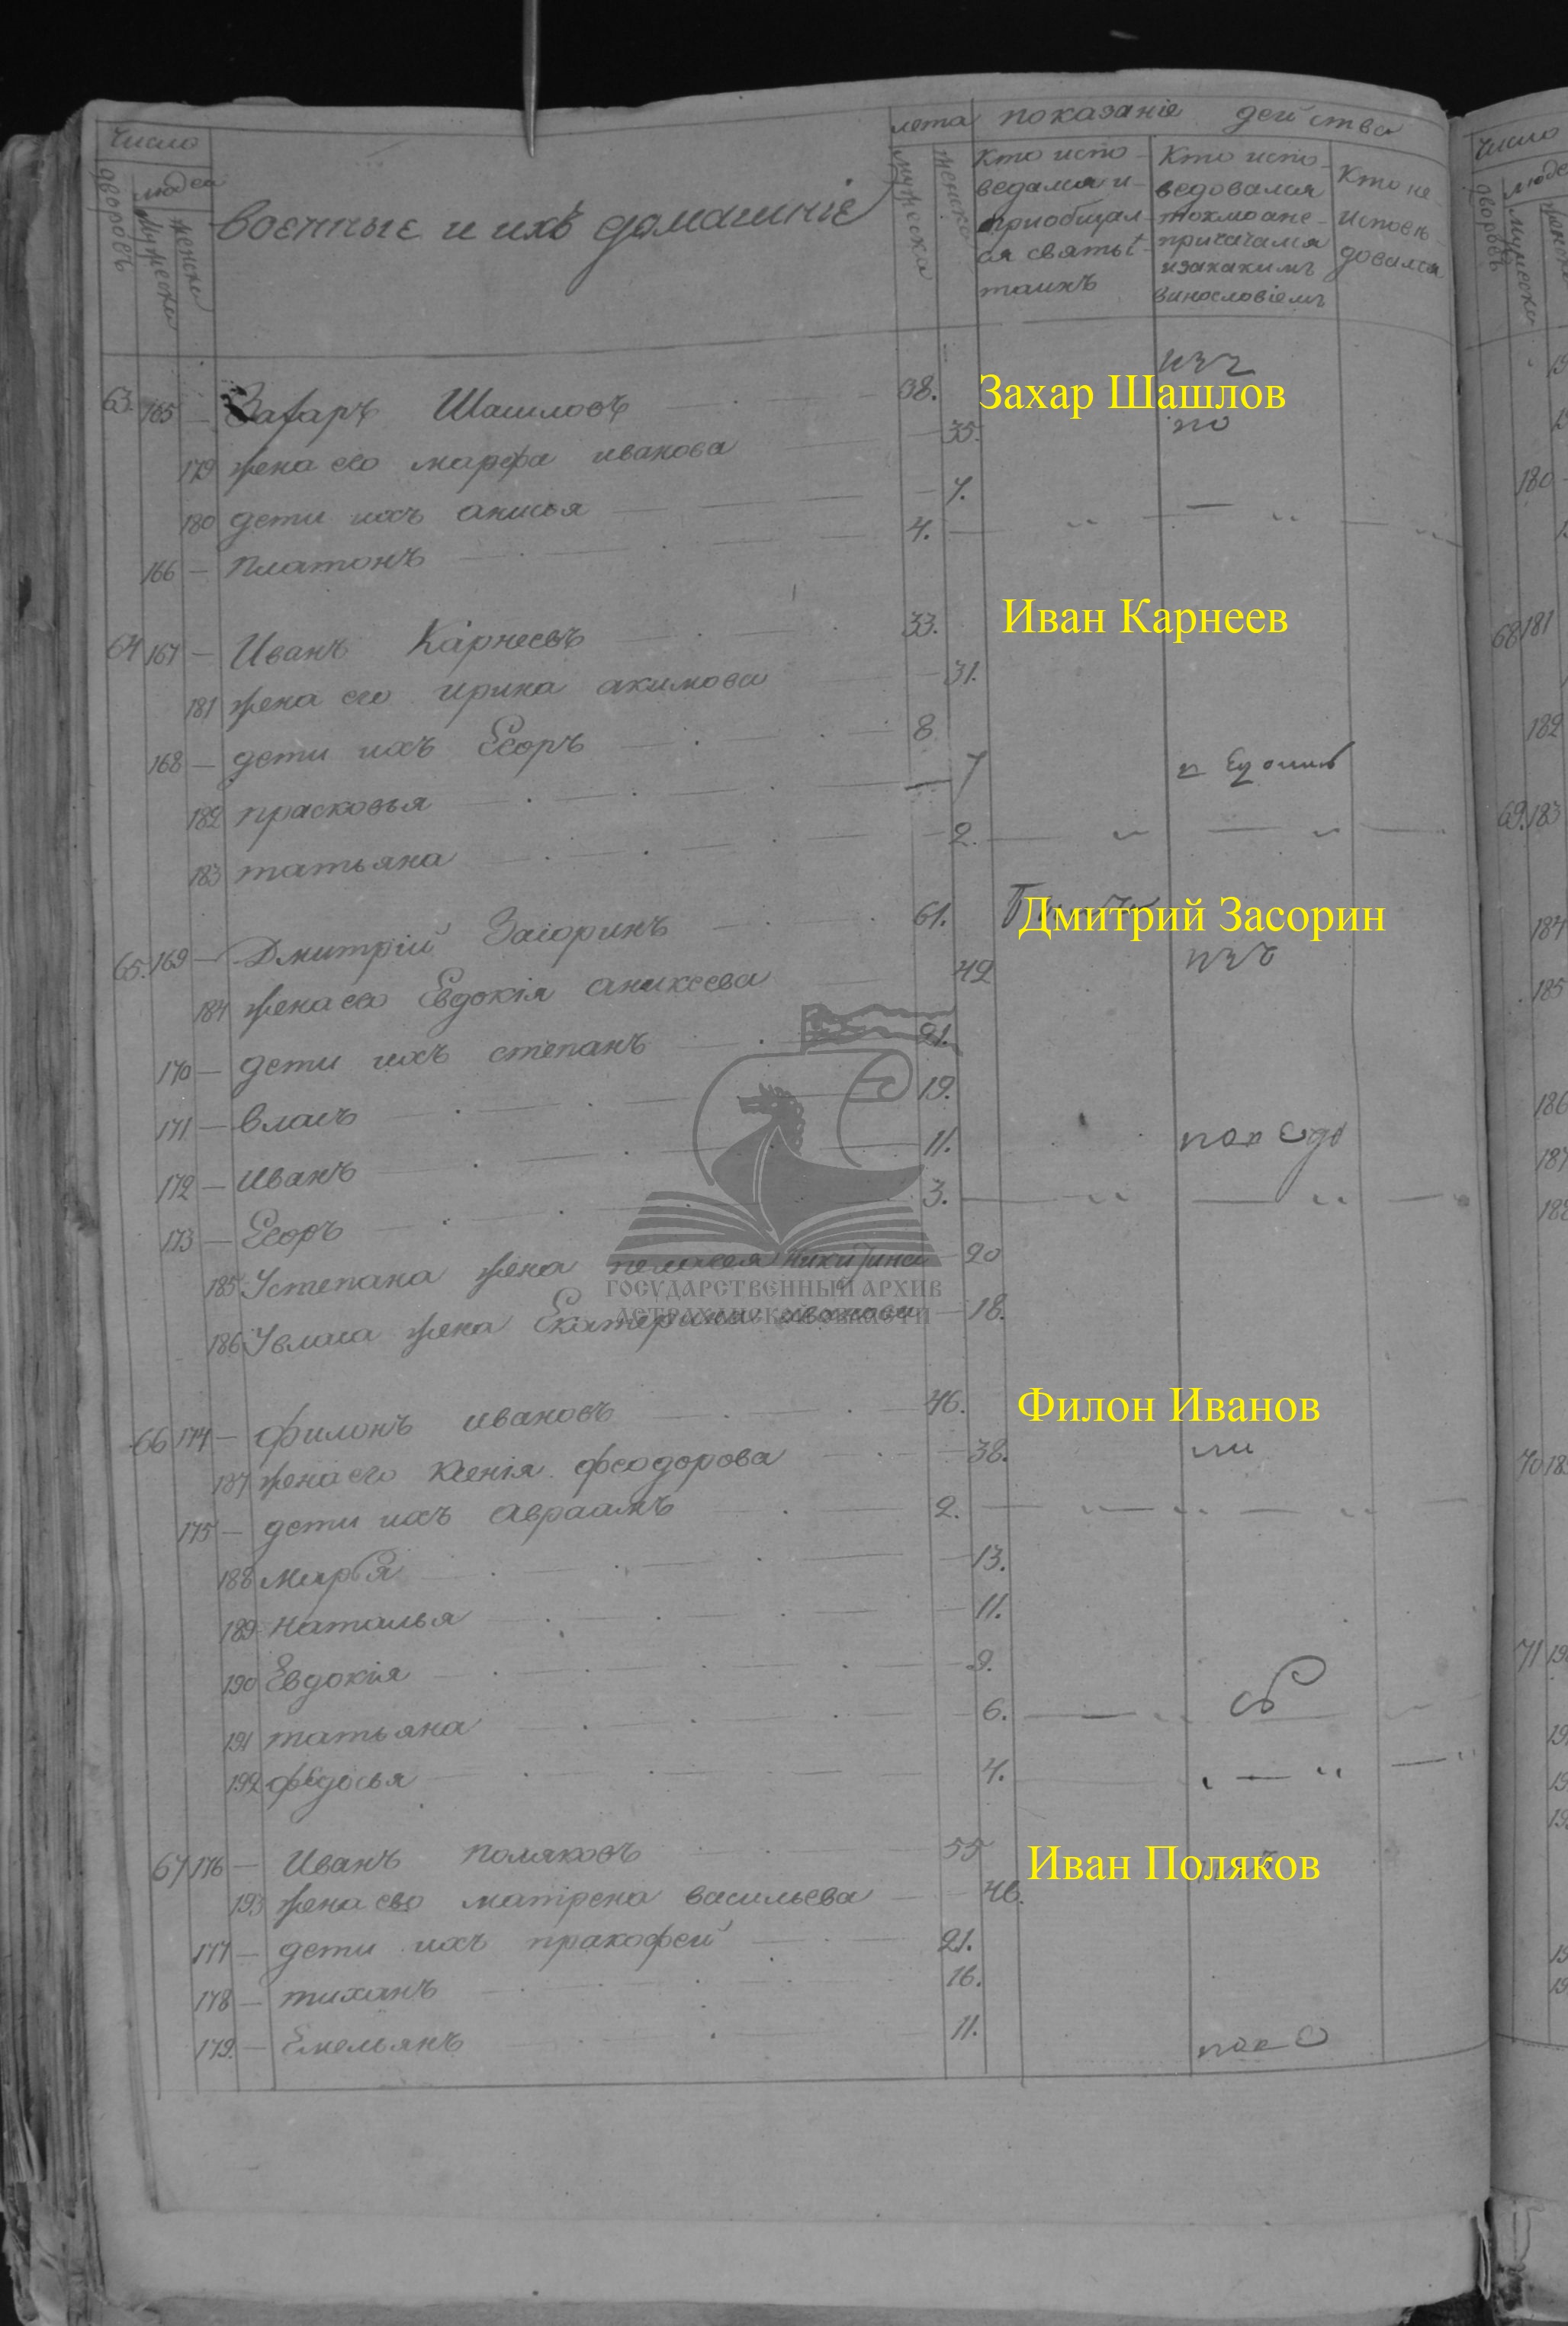 число
лета показаніе действа
дворовъ
людей
мужеска
женска
военные и ихъ домашніе
мужеска
женска
Кто испо-
ведался и
приобщал-
ся святыt
таинъ
Кто испо-
ведовался
токмо а не-
причачался
и за какимъ
винословіемъ
Кто не
исповѣ-
довался
63. 165 — Захаръ Шашловъ 38.
Захар Шашлов
179 жена его марфа иванова — 35.
по
180 дети ихъ анисья — 7.
166 — Платонъ 4.
64 167 — Иванъ Карнеевъ 33.
Иван Карнеев
181 жена его ирина акимова — 31.
168 — дети ихъ Егоръ 8
182 прасковья — 7
183 татьяна — 2.
65. 169 — Дмитрій Засоринъ 61.
Дмитрий Засорин
184 жена его Евдокія аникеева 42
170 — дети ихъ степанъ 21.
171 — власъ 19.
172 — Иванъ 11.
173 — Егоръ 3.
185 Устепана жена пелагея никитина — 20
ГОСУДАРСТВЕННЫЙ АРХИВ
АСТРАХАНСКОЙ ОБЛАСТИ
186 Увласа жена Екатерина иванова — 18.
66 174 — филонъ ивановъ 46.
Филон Иванов
187 жена его Ксенія феодорова — 38.
175 — дети ихъ авраамъ 2.
188 марья — 13.
189 наталья — 11.
190 Евдокія — 9.
191 татьяна — 6.
192 федосья — 4.
67 176 — Иванъ поляковъ 55
Иван Поляков
193 жена его матрена васильева — 46.
177 — дети ихъ пракофей 21.
178 — тиханъ 16.
179. — Емельянъ 11.
число
дворовъ
людей
мужеска
женска
180
68 181
182
69. 183
184
185
186
187
70
71